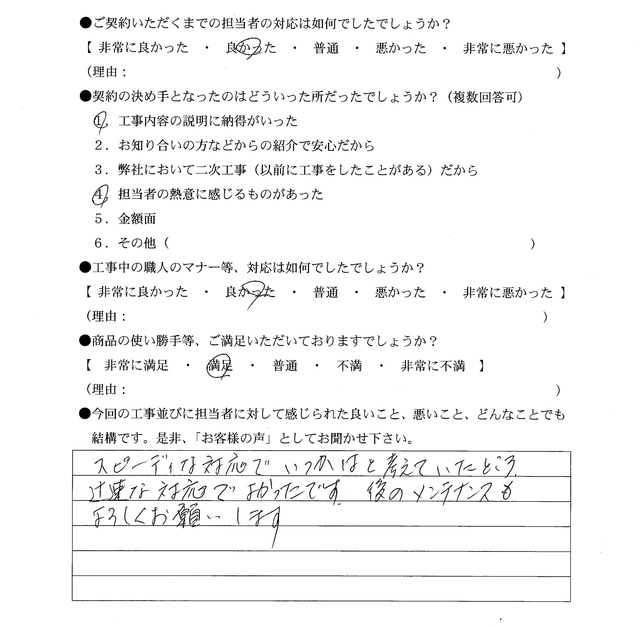 ●ご契約いただくまでの担当者の対応は如何でしたでしょうか？
【 非常に良かった ・ 良かった ・ 普通 ・ 悪かった ・ 非常に悪かった 】
（理由： ）
●契約の決め手となったのはどういった所だったでしょうか？（複数回答可）
1．工事内容の説明に納得がいった
2．お知り合いの方などからの紹介で安心だから
3．弊社において二次工事（以前に工事をしたことがある）だから
4．担当者の熱意に感じるものがあった
5．金額面
6．その他（ ）
●工事中の職人のマナー等、対応は如何でしたでしょうか？
【 非常に良かった ・ 良かった ・ 普通 ・ 悪かった ・ 非常に悪かった 】
（理由： ）
●商品の使い勝手等、ご満足いただいておりますでしょうか？
【 非常に満足 ・ 満足 ・ 普通 ・ 不満 ・ 非常に不満 】
（理由： ）
●今回の工事並びに担当者に対して感じられた良いこと、悪いこと、どんなことでも
結構です。是非、「お客様の声」としてお聞かせ下さい。
スピーディな対応で いつかはと考えていたところ
迅速な対応でよかったです 後のメンテナンスも
よろしくお願いします